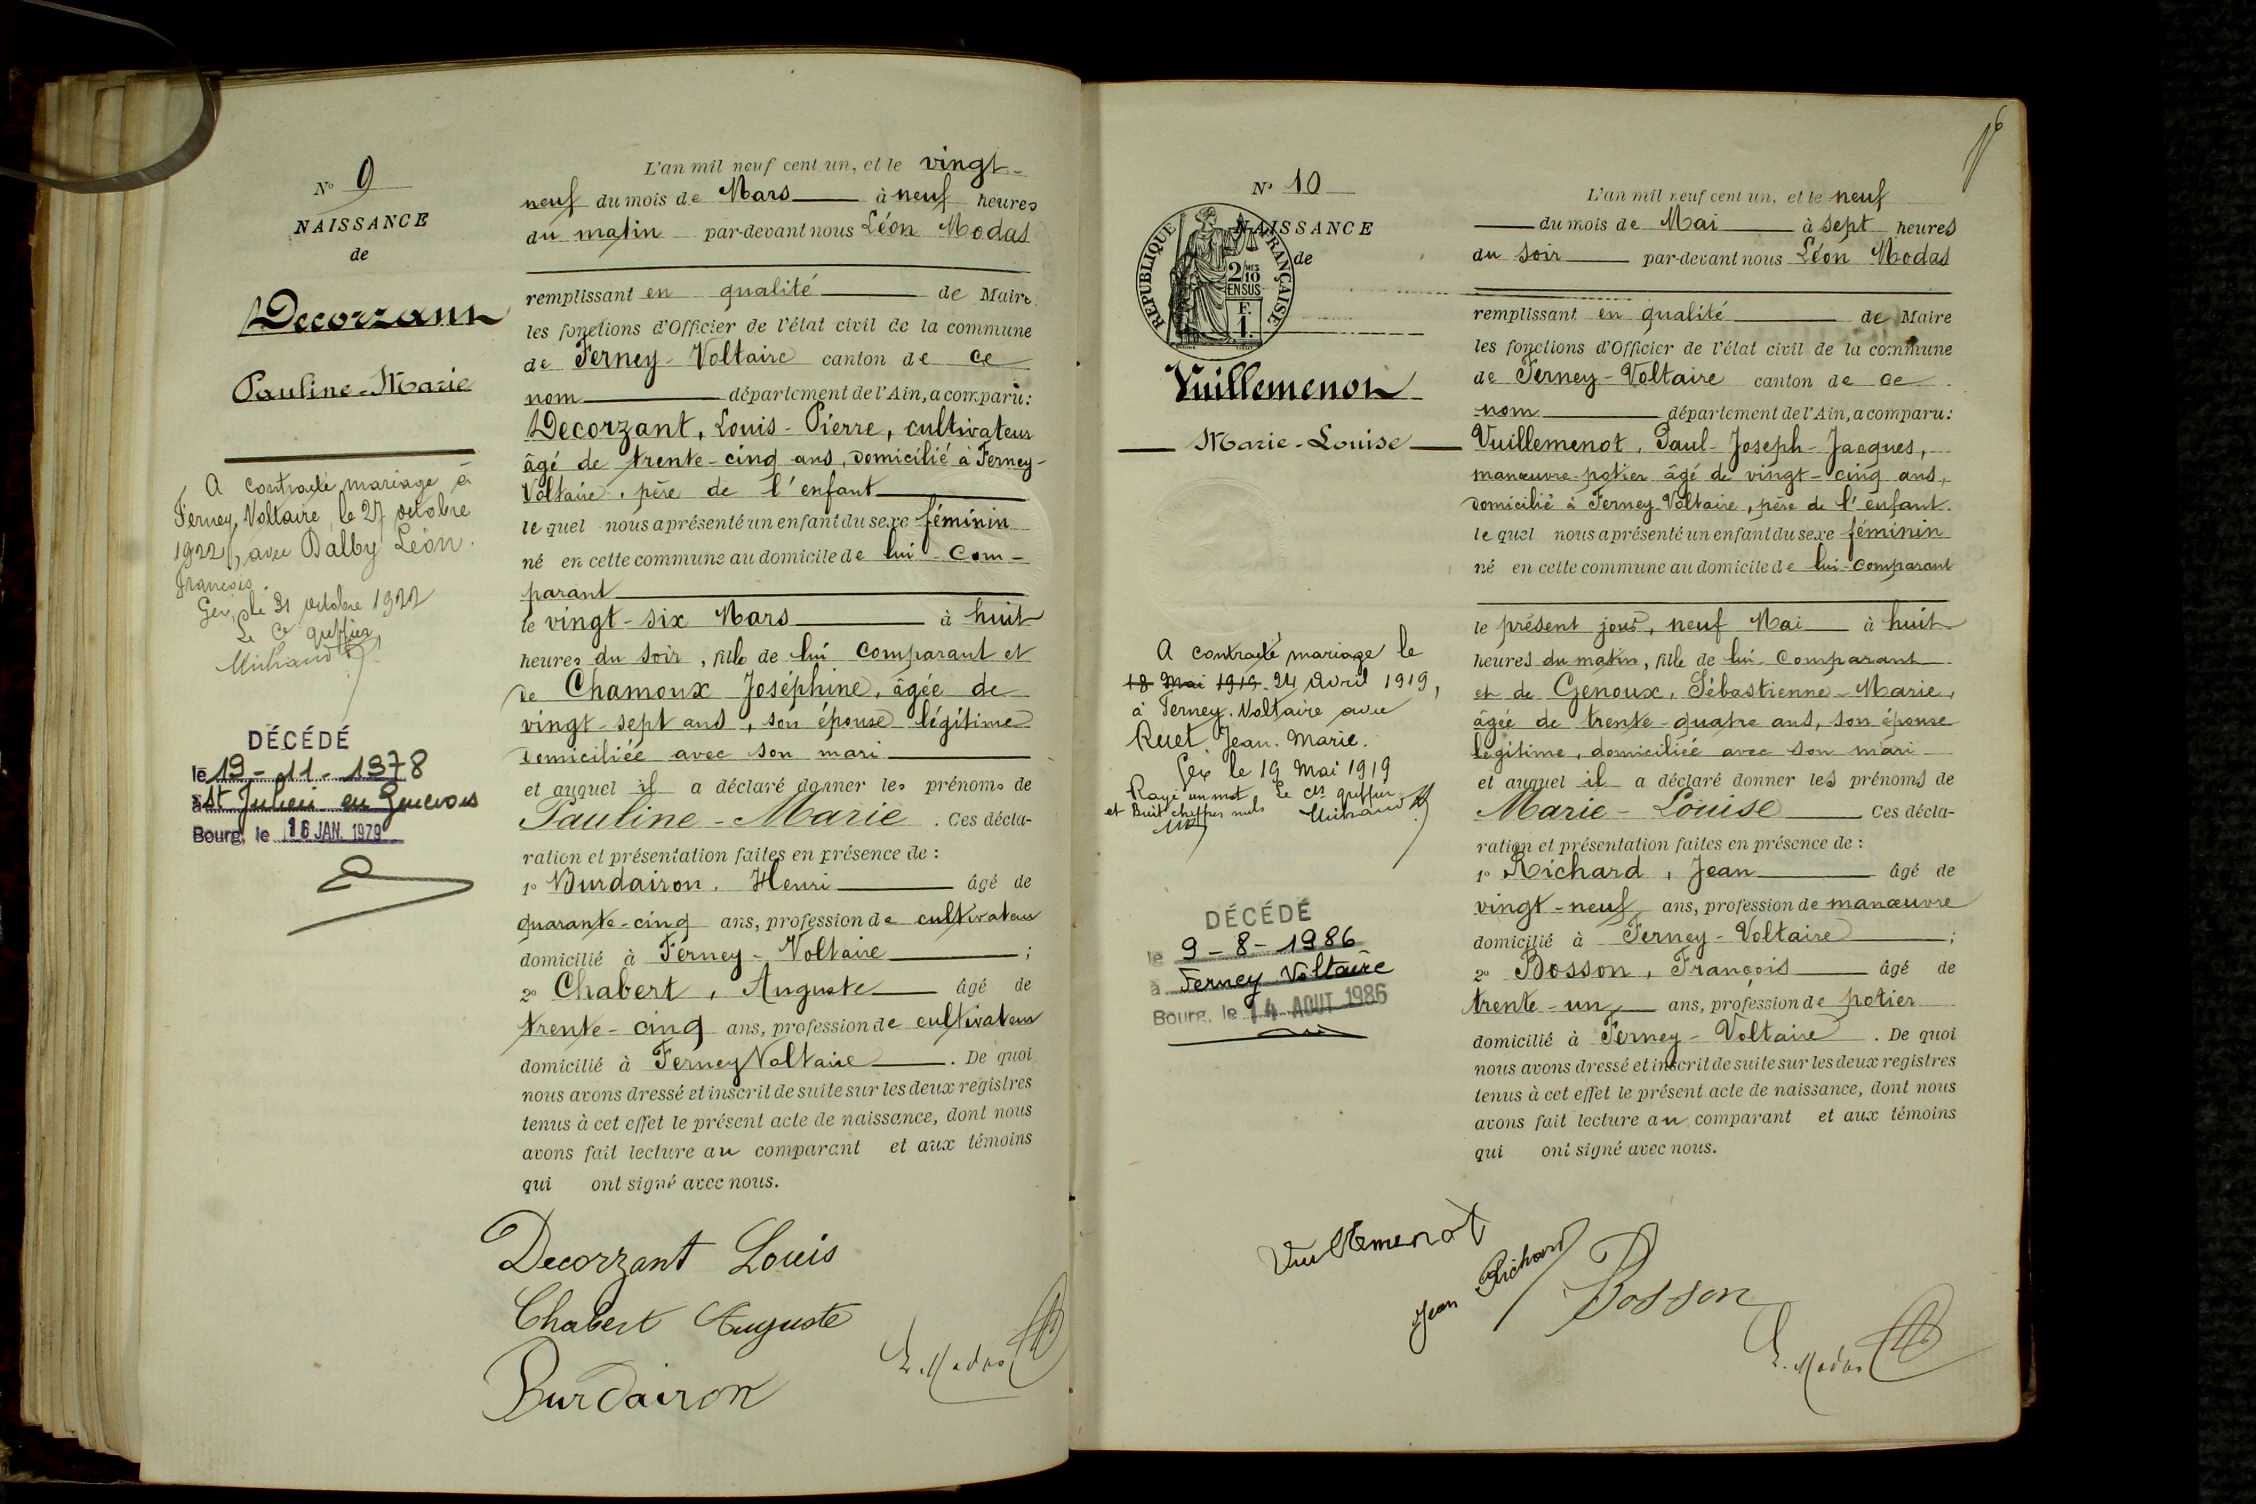 N° 9
NAISSANCE
de
Decorzant
Pauline-Marie
A contracté mariage à
Ferney Voltaire, le 27 octobre
1922, avec Dalby Léon.
François.
Gex, le 31 octobre 1922
Le Cis greffier
Michaud
DÉCÉDÉ
le 19-11-1978
à St Julien en Genevois
Bourg, le 16 JAN. 1979
L'an mil neuf cent un, et le vingt-
neuf du mois de Mars à neuf heures
du matin par-devant nous Léon Modas
remplissant en qualité de Maire
les fonctions d'Officier de l'état civil de la commune
de Ferney-Voltaire canton de ce
nom département de l'Ain, a comparu:
Decorzant, Louis-Pierre, cultivateur
âgé de trente-cinq ans, domicilié à Ferney-
Voltaire, père de l'enfant
le quel nous a présenté un enfant du sexe féminin
né en cette commune au domicile de lui com-
parant
le vingt-six Mars à huit
heures du soir, fille de lui comparant et
de Chamoux Joséphine, âgée de
vingt-sept ans, son épouse légitime
domiciliée avec son mari
et auquel il a déclaré donner les prénoms de
Pauline-Marie. Ces décla-
ration et présentation faites en présence de :
1° Burdairon. Henri âgé de
quarante-cinq ans, profession de cultivateur
domicilié à Ferney-Voltaire ;
2° Chabert, Auguste âgé de
trente-cinq ans, profession de cultivateur
domicilié à Ferney Voltaire. De quoi
nous avons dressé et inscrit de suite sur les deux registres
tenus à cet effet le présent acte de naissance, dont nous
avons fait lecture au comparant et aux témoins
qui ont signé avec nous.
Decorzant Louis
Chabert Auguste
L. Modas
Burdairon
16
N° 10
NAISSANCE
de
RÉPUBLIQUE FRANÇAISE
2/10 MES
EN SUS
F.
1.
Vuillemenot
Marie-Louise
A contracté mariage le
18 Mai 1919 24 Avril 1919,
à Ferney-Voltaire avec
Ruet Jean. Marie.
Gex le 19 Mai 1919
Rayé un mot Le cis greffier
et huit chiffres nuls Michaud
DÉCÉDÉ
le 9-8-1986
à Ferney Voltaire
Bourg, le 14 AOUT 1986
L'an mil neuf cent un, et le neuf
du mois de Mai à sept heures
du soir par-devant nous Léon Modas
remplissant en qualité de Maire
les fonctions d'Officier de l'état civil de la commune
de Ferney-Voltaire canton de ce
nom département de l'Ain, a comparu:
Vuillemenot, Paul-Joseph-Jacques,
manœuvre-potier âgé de vingt-cinq ans,
domicilié à Ferney-Voltaire, père de l'enfant.
le quel nous a présenté un enfant du sexe féminin
né en cette commune au domicile de lui-comparant
le présent jour, neuf Mai à huit
heures du matin, fille de lui-comparant
et de Genoux, Sébastienne-Marie,
âgée de trente-quatre ans, son épouse
légitime, domiciliée avec son mari
et auquel il a déclaré donner les prénoms de
Marie-Louise Ces décla-
ration et présentation faites en présence de :
1° Richard, Jean âgé de
vingt-neuf ans, profession de manœuvre
domicilié à Ferney-Voltaire ;
2° Bosson, François âgé de
trente-un ans, profession de potier
domicilié à Ferney-Voltaire. De quoi
nous avons dressé et inscrit de suite sur les deux registres
tenus à cet effet le présent acte de naissance, dont nous
avons fait lecture au comparant et aux témoins
qui ont signé avec nous.
Vuillemenot
Jean Richard
Bosson
L. Modas